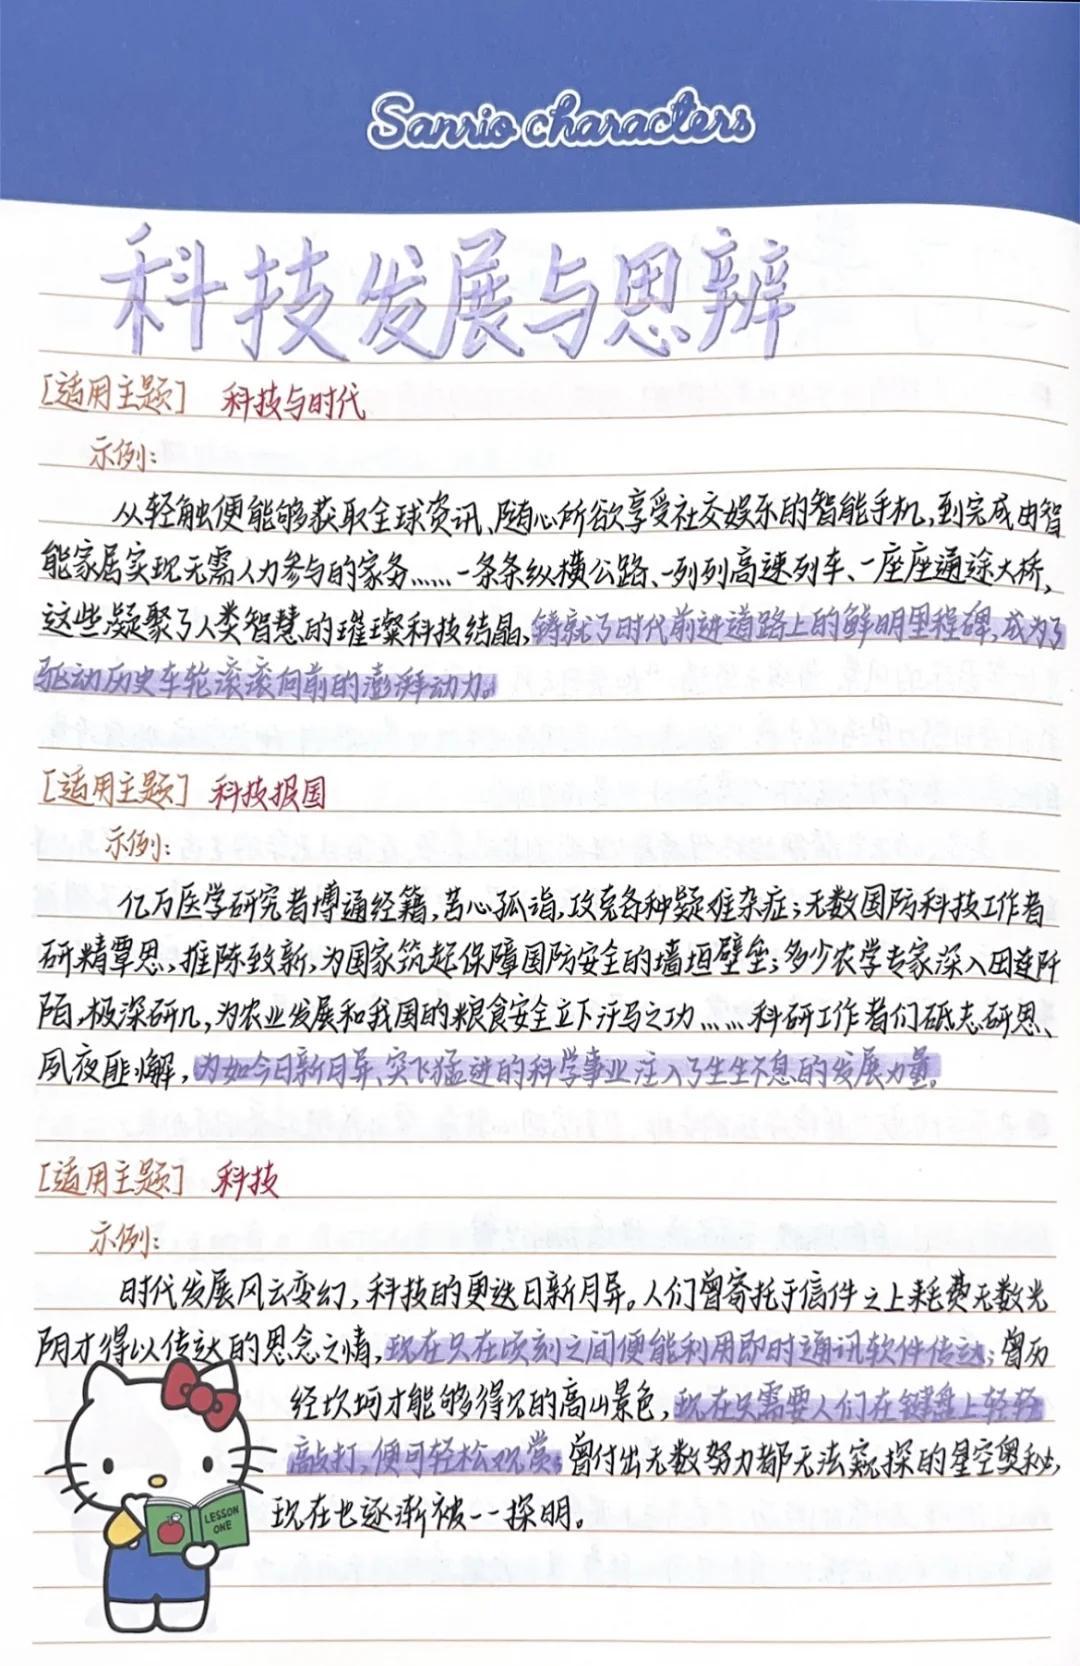 Sanrio characters
科技发展与思辨
[适用主题] 科技与时代
示例：
从轻触便能够获取全球资讯、随心所欲享受社交娱乐的智能手机，到完成由智
能家居实现无需人力参与的家务……一条条纵横公路、一列列高速列车、一座座通途大桥，
这些凝聚了人类智慧的璀璨科技结晶，铸就了时代前进道路上的鲜明里程碑，成为了
驱动历史车轮滚滚向前的澎湃动力。
[适用主题] 科技报国
示例：
亿万医学研究者博通经籍，苦心孤诣，攻克各种疑难杂症；无数国防科技工作者
研精覃思、推陈致新，为国家筑起保障国防安全的墙垣壁垒；多少农学专家深入田连阡
陌，极深研几，为农业发展和我国的粮食安全立下汗马之功……科研工作者们砥志研思、
夙夜匪懈，为如今日新月异、突飞猛进的科学事业注入了生生不息的发展力量。
[适用主题] 科技
示例：
时代发展风云变幻，科技的更迭日新月异。人们曾寄托于信件之上耗费无数光
阴才得以传达的思念之情，现在只在顷刻之间便能利用即时通讯软件传达；曾历
经坎坷才能够得见的高山景色，现在只需要人们在键盘上轻轻
敲打，便可轻松观赏；曾付出无数努力都无法窥探的星空奥秘，
LESSON
ONE
现在也逐渐被一一探明。